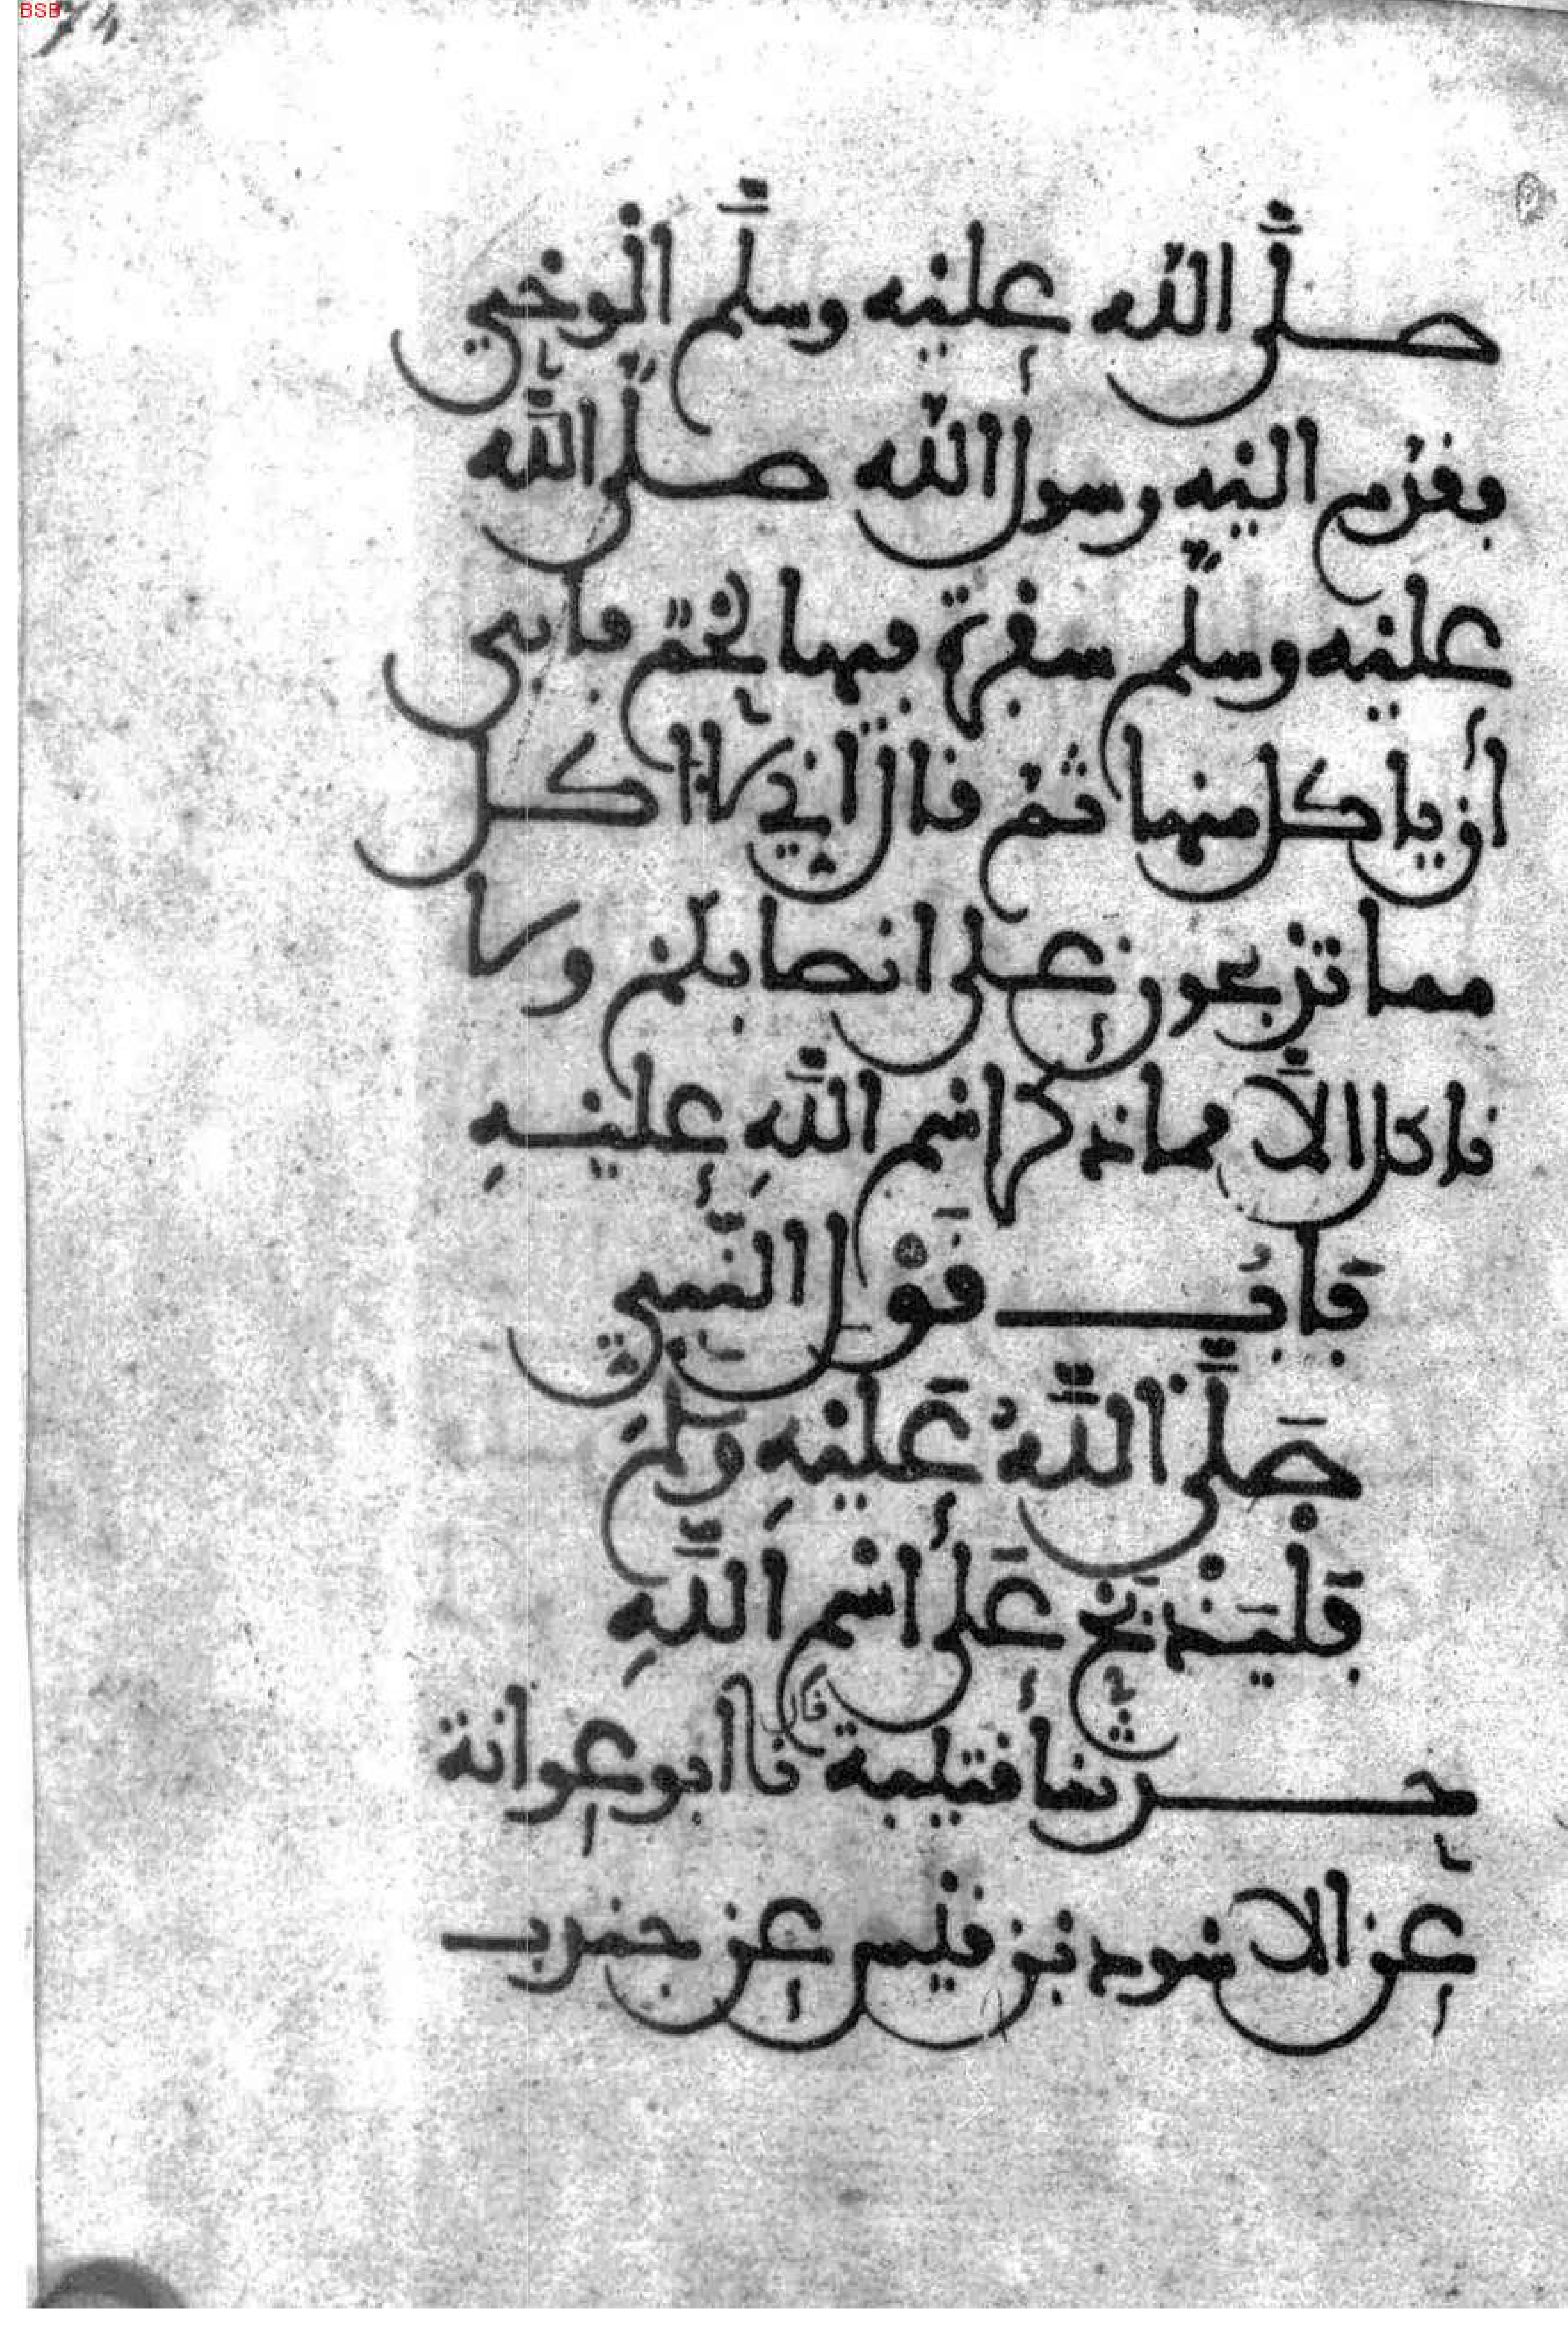 BSB
74
صلى الله عليه وسلم الوحي
فقدم اليه رسول الله صلى الله
عليه وسلم سفرة فيها لحم فابى
أن ياكل منها ثم قال اني لا اكل
مما تذبحون على انصابكم ولا
ناكل الا مما ذكر اسم الله عليه
بَابُ قَوْلِ النَّبِيِّ
صَلَّى اللَّهُ عَلَيْهِ وسلم
فَلْيَذْبَحْ عَلَى اسْمِ اللَّهِ
حدثنا قتيبة قال نا ابو عوانة
عن الاسود بن قيس عن جندب